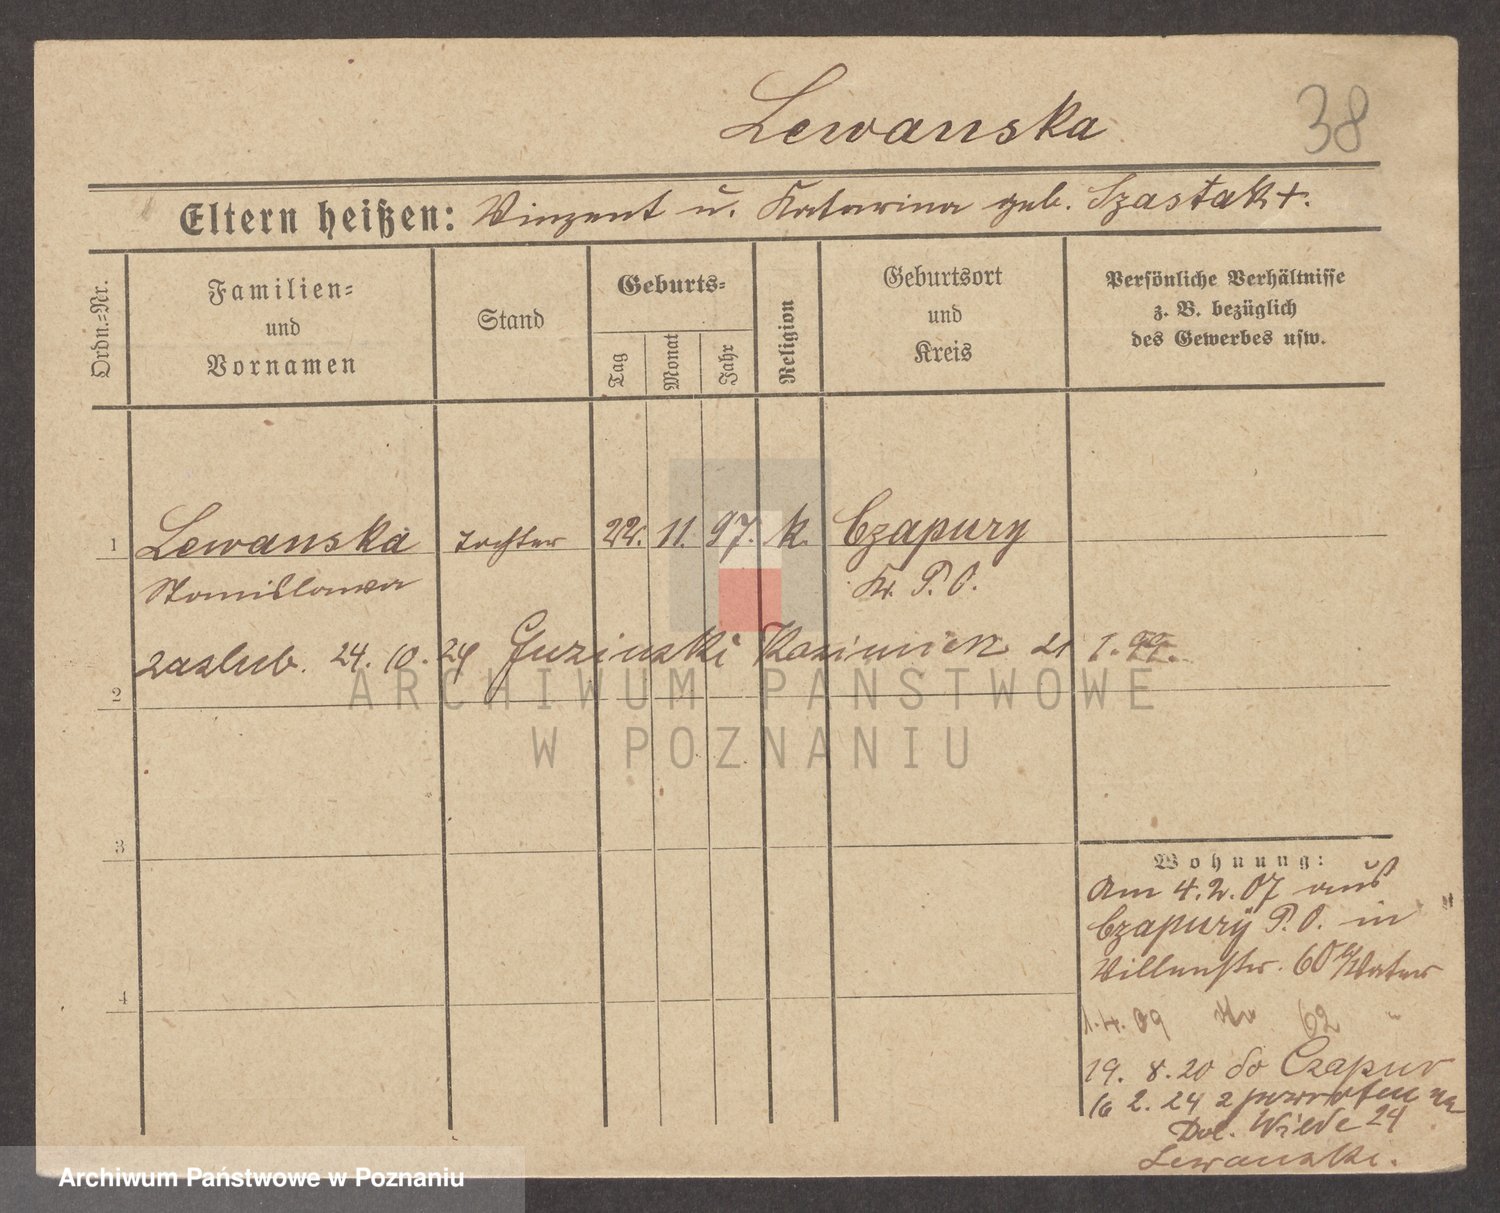 Lewanska
38
Eltern heißen: Vinzent u. Katarina geb. Szastak +.
Ordn.-Nr.
Familien-
und
Vornamen
Stand
Geburts-
Tag
Monat
Jahr
Religion
Geburtsort
und
Kreis
Persönliche Verhältnisse
z. B. bezüglich
des Gewerbes usw.
1 Lewanska Tochter 22. 11. 97. k. Czapury
Stanislawa Kr. P. O.
zaslub. 24. 10. 24 Guzinski Kazimierz 21 1. 99.
2
3
4
Wohnung:
Am 4.2.07 aus
Czapury P. O. in
Villenstr. 60 b/Vater
1.4.09 62 "
19. 8. 20 do Czapur
16 2. 24 z powrotem na
Dol. Wilde 24
Lewanski.
ARCHIWUM PAŃSTWOWE
W POZNANIU
Archiwum Państwowe w Poznaniu